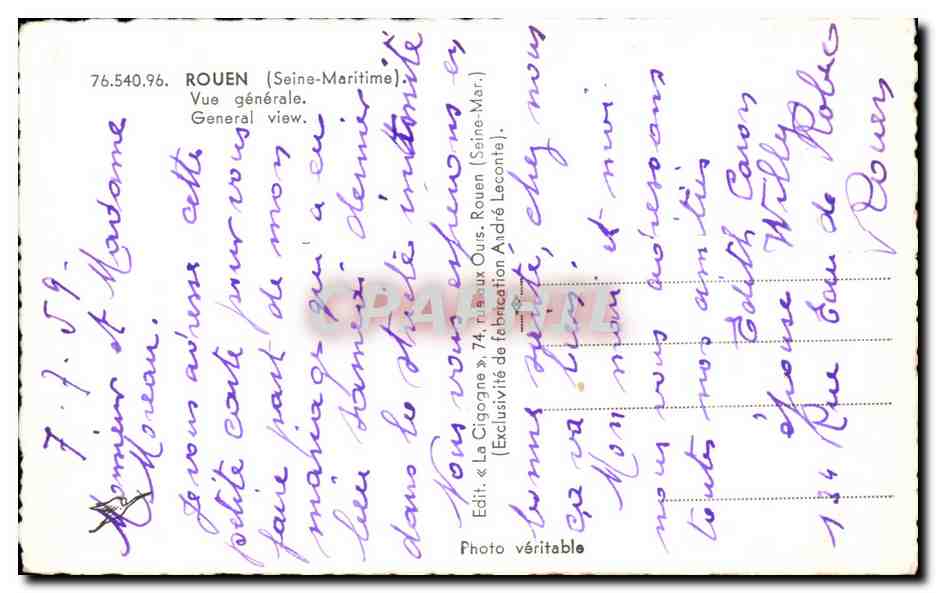 76.540.96. ROUEN (Seine-Maritime).
Vue générale.
General view.
7.7.59.
Monsieur et Madame
Moreau.
Je vous adresse cette
petite carte pour vous
faire part de mon
mariage qui a eu
lieu samedi dernier
dans la stricte intimité
Nous vous espérons en
bonne santé, chez nous
ça va bien.
Mon mari et moi
nous vous adressons
toutes nos amitiés
Edith Caron
épouse Willy
134 Rue Eau de Robec
Rouen
Edit. « La Cigogne », 74, rue aux Ours. Rouen (Seine-Mar.)
(Exclusivité de fabrication André Leconte).
Photo véritable
CPARPHIL